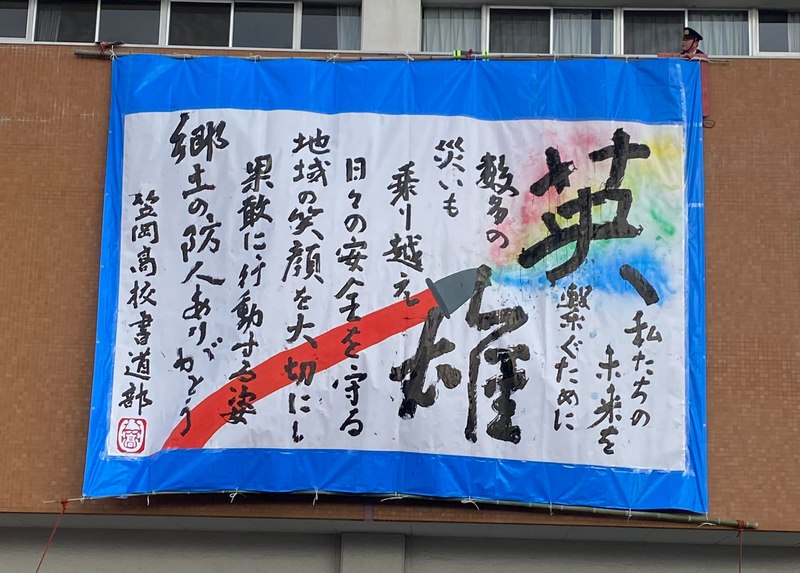 英雄
私たちの
未来を
繋ぐために
数多の
災いも
乗り越え
日々の安全を守る
地域の笑顔を大切にし
果敢に行動する姿
郷土の防人ありがとう
笠岡高校書道部